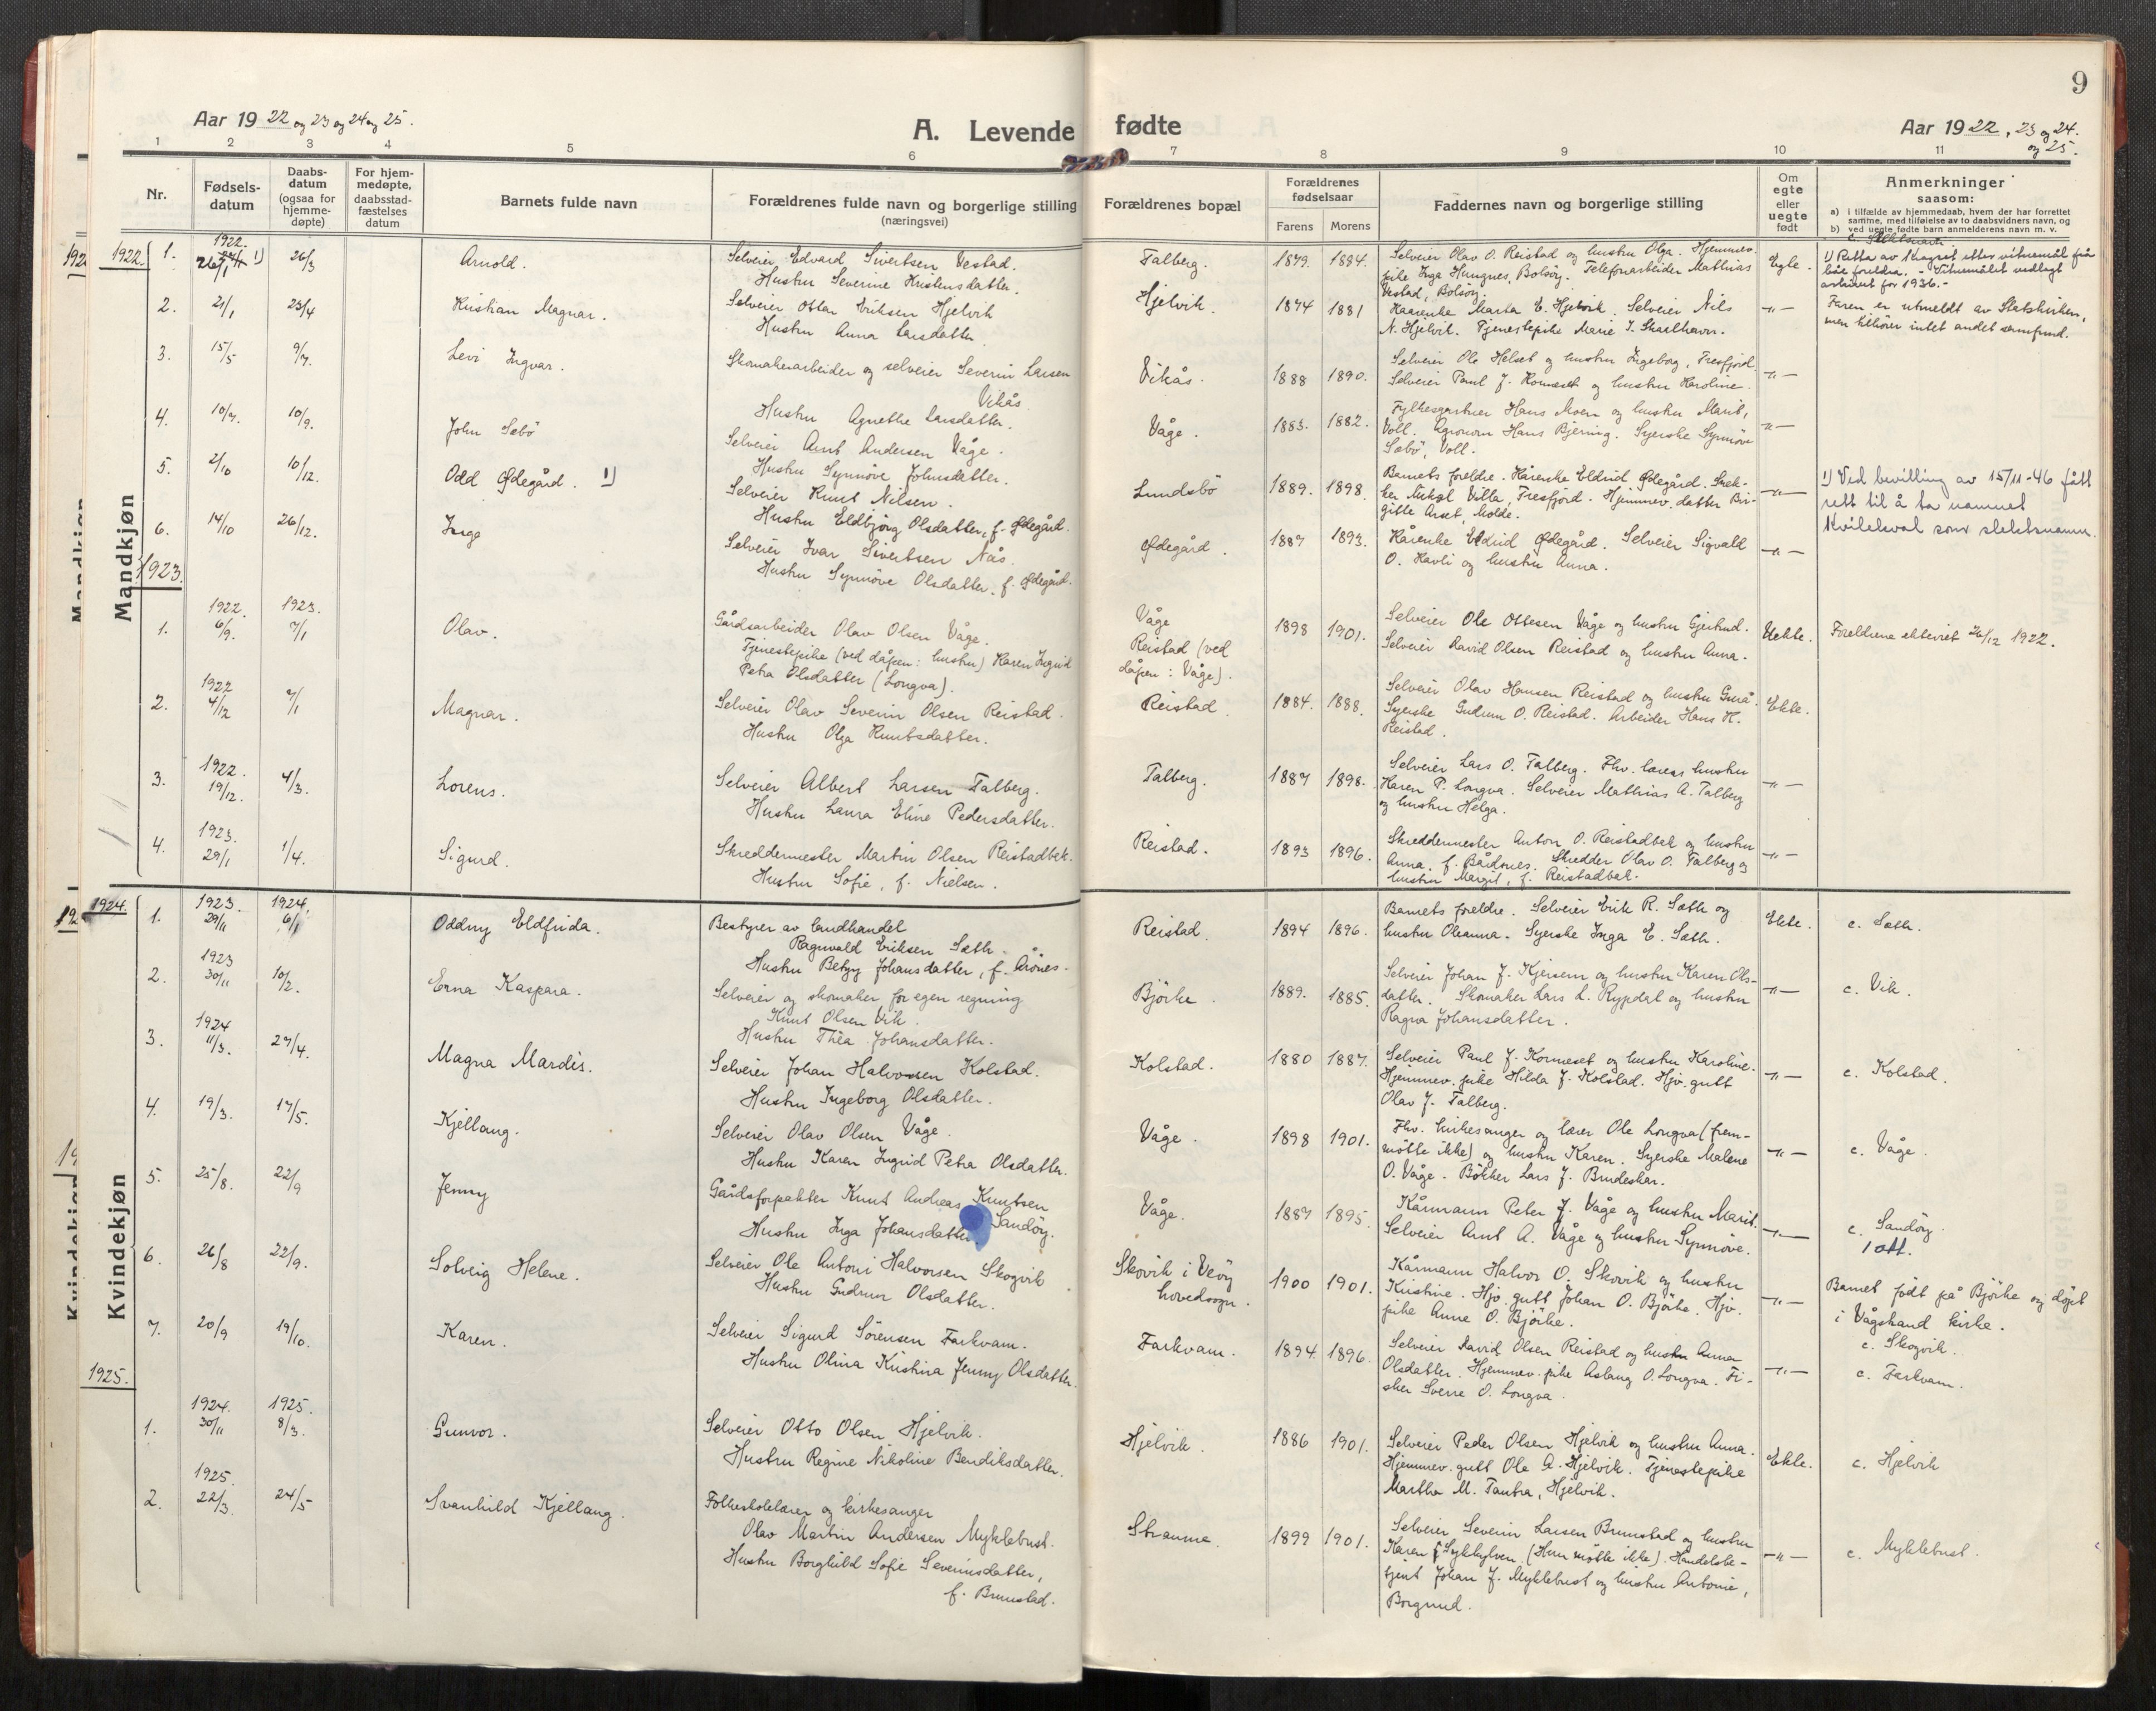 9
Aar 1922 og 23 og 24 og 25.
A. Levende fødte
Aar 1922, 23 og 24.
og 25.
1 2 3 4 5 6 7 8 9 10 11
Nr.
Fødsels-
datum
Daabs-
datum
(ogsaa for
hjemme-
døpte)
For hjem-
medøpte,
daabsstad-
fæstelses
datum
Barnets fulde navn
Forældrenes fulde navn og borgerlige stilling
(næringsvei)
Forældrenes bopæl
Forældrenes
fødselsaar
Farens Morens
Faddernes navn og borgerlige stilling
Om
egte
eller
uegte
født
Anmerkninger
saasom:
a) i tilfælde av hjemmedaab, hvem der har forrettet
samme, med tilføielse av to daabsvidners navn, og
b) ved uegte fødte barn anmelderens navn m. v.
c. Slektsnavn
Mandkjøn
1922.
1. 1922. 26/1 1) 26/3 Arnold.
Selveier Edvard Sivertsen Vestad.
Hustru Severine Kristensdatter.
Talberg. 1879. 1884.
Selveier Olav O. Reistad og hustru Olga. Hjemmev.
pike Inga Hungnes, Bolsöy. Telefonarbeider Mathias
Vestad, Bolsöy.
Egte.
1) Retta av Kragset etter vitnemål frå
båe foreldra. - Vitnemålet vedlagt
arkivet for 1936.-
2. 21/1 23/4 Kristian Magnar.
Selveier Ottar Eriksen Hjelvik
Hustru Anna Larsdatter.
Hjelvik. 1874 1881
Haarenke Marta E. Hjelvik. Selveier Nils
N. Hjelvik. Tjenestepike Marie I. Skaalhavn.
-"-
Faren er utmeldt av Statskirken,
men tilhører intet andet samfund.
3. 15/5 9/7. Levi Ingvar.
Skomakerarbeider og selveier Severin Larsen
Vikås
Hustru Agnethe Larsdatter.
Vikås. 1888 1890.
Selveier Ole Helset og hustru Ingeborg, Tresfjord.
Selveier Paul J. Kormeset og hustru Karoline.
-"-
4. 10/7. 10/9. John Sæbö
Selveier Arnt Andersen Våge.
Hustru Synnöve Johnsdatter.
Våge. 1883. 1882.
Fylkesgartner Hans Moen og hustru Marit,
Voll. Agronom Hans Bjering. Syerske Synnöve
Sæbö, Voll.
-"-
5. 2/10 10/12. Odd Ødegård. 1)
Selveier Knut Nilsen.
Hustru Eldbjörg Olsdatter, f. Ødegård.
Lundsbö 1889. 1898.
Barnets foreldre. Kårenke Eldrid Ødegård. Snek-
ker Nikol. Villa, Tresfjord. Hjemmev. datter Bir-
gitte Arset, Molde.
-"-
1) Ved bevilling av 15/11-46 fått
rett til å ta namnet
Kvileleval som slektsnamn.
6. 14/10 26/12. Inge
Selveier Ivar Sivertsen Nås.
Hustru Synnöve Olsdatter, f. Ødegård.
Ødegård. 1887 1893.
Kårenke Eldrid Ødegård. Selveier Sigvald
O. Havli og hustru Anna.
-"-
1923.
1922. 1923.
1. 6/9. 7/1 Olav.
Gårdsarbeider Olav Olsen Våge.
Tjenestepike (ved dåpen: hustru) Karen Ingrid
Petra Olsdatter (Longva).
Våge
Reistad (ved
dåpen: Våge).
1898 1901.
Selveier Ole Ottesen Våge og hustru Gjertrud.
Selveier David Olsen Reistad og hustru Anna.
Uekte.
Foreldrene ekteviet 26/12 1922.
1922
2. 4/12 7/1 Magnar.
Selveier Olav Severin Olsen Reistad.
Hustru Olga Knutsdatter.
Reistad. 1884. 1888.
Selveier Olav Hansen Reistad og hustru Gurå.
Syerske Gudrun O. Reistad. Arbeider Hans K.
Reistad.
Ekte.
1922.
3. 19/12. 4/3. Lorens.
Selveier Albert Larsen Talberg.
Hustru Laura Eline Pedersdatter.
Talberg. 1887 1898.
Selveier Lars O. Talberg. Fhv. lærers hustru
Karen P. Longva. Selveier Mathias A. Talberg
og hustru Helga.
-"-
1923.
4. 29/1 1/4. Sigurd.
Skreddermester Martin Olsen Reistadbak.
Hustru Sofie, f. Nielsen.
Reistad. 1893 1896.
Skreddermester Anton O. Reistadbak og hustru
Anna, f. Bårdnes. Skredder Olav O. Talberg og
hustru Margit, f. Reistadbak.
-"-
Kvindekjøn
1924.
1923. 1924.
1. 29/11 6/1 Oddny Eldfrida.
Bestyrer av landhandel
Ragnvald Eriksen Sæth.
Hustru Betzy Johansdatter, f. Årönes.
Reistad. 1894 1896.
Barnets foreldre. Selveier Erik R. Sæth og
hustru Oleanna. Syerske Inga E. Sæth.
Ekte. c. Sæth.
1923
2. 30/11 10/2. Erna Kaspara.
Selveier og skomaker for egen regning
Knut Olsen Vik.
Hustru Thea Johansdatter.
Björke. 1889. 1885.
Selveier Johan J. Kjersem og hustru Karen Ols-
datter. Skomaker Lars L. Rypdal og hustru
Ragna Johansdatter.
-"- c. Vik.
1924
3. 11/3. 27/4. Magna Mardis.
Selveier Johan Halvorsen Kolstad.
Hustru Ingeborg Olsdatter.
Kolstad. 1880 1887.
Selveier Paul J. Kormeset og hustru Karoline.
Hjemmev. pike Hilda J. Kolstad. Hjv. gutt
Olav J. Talberg.
-"- c. Kolstad.
4. 19/3. 17/5. Kjellaug.
Selveier Olav Olsen Våge.
Hustru Karen Ingrid Petra Olsdatter.
Våge. 1898 1901.
Fhv. kirkesanger og lærer Ole Longva (frem-
mötte ikke) og hustru Karen. Syerske Malene
O. Våge. Bökker Lars J. Brudeskar.
-"- c. Våge.
5. 25/8. 22/9 Jenny
Gårdsforpakter Knut Andreas Knutsen
Sandöy.
Hustru Inga Johansdatter.
Våge. 1887 1895.
Kårmann Peter J. Våge og hustru Marit.
Selveier Arnt A. Våge og hustru Synnöve.
-"- c. Sandöy.
1 att.
6. 26/8 22/9. Solveig Helene.
Selveier Ole Antoni Halvorsen Skogvik.
Hustru Gudrun Olsdatter.
Skovik i Veöy
hovedsogn.
1900 1901.
Kårmann Halvor O. Skovik og hustru
Kristine. Hjv. gutt Johan O. Björke. Hjv.
pike Anne O. Björke.
-"-
Barnet födt på Björke og döpt
i Vågstrand kirke.
c. Skogvik.
7. 20/9 19/10. Karen.
Selveier Sigurd Sörensen Farkvam.
Hustru Olina Kristina Jenny Olsdatter.
Farkvam. 1894. 1896.
Selveier David Olsen Reistad og hustru Anna
Olsdatter. Hjemmev. pike Aslaug O. Longva. Fi-
sker Sverre O. Longva.
-"- c. Farkvam.
1925.
1924. 1925.
1. 30/11 8/3. Gunvor.
Selveier Otto Olsen Hjelvik.
Hustru Regine Nikoline Bendiksdatter.
Hjelvik. 1886 1901.
Selveier Peder Olsen Hjelvik og hustru Anna.
Hjemmev. gutt Ole A. Hjelvik. Tjenestepike
Martha M. Tautra, Hjelvik.
Ekte. c. Hjelvik
1925.
2. 22/3. 24/5 Svanhild Kjellaug.
Folkeskolelærer og kirkesanger
Olav Martin Andersen Myklebust.
Hustru Borghild Sofie Severinsdatter,
f. Brunstad.
Straume. 1899 1901.
Selveier Severin Larsen Brunstad og hustru
Karen f. Sykkylven. (Hun mötte ikke). Handelsbe-
tjent Johan J. Myklebust og hustru Antonie,
Borgund.
-"- c. Myklebust.